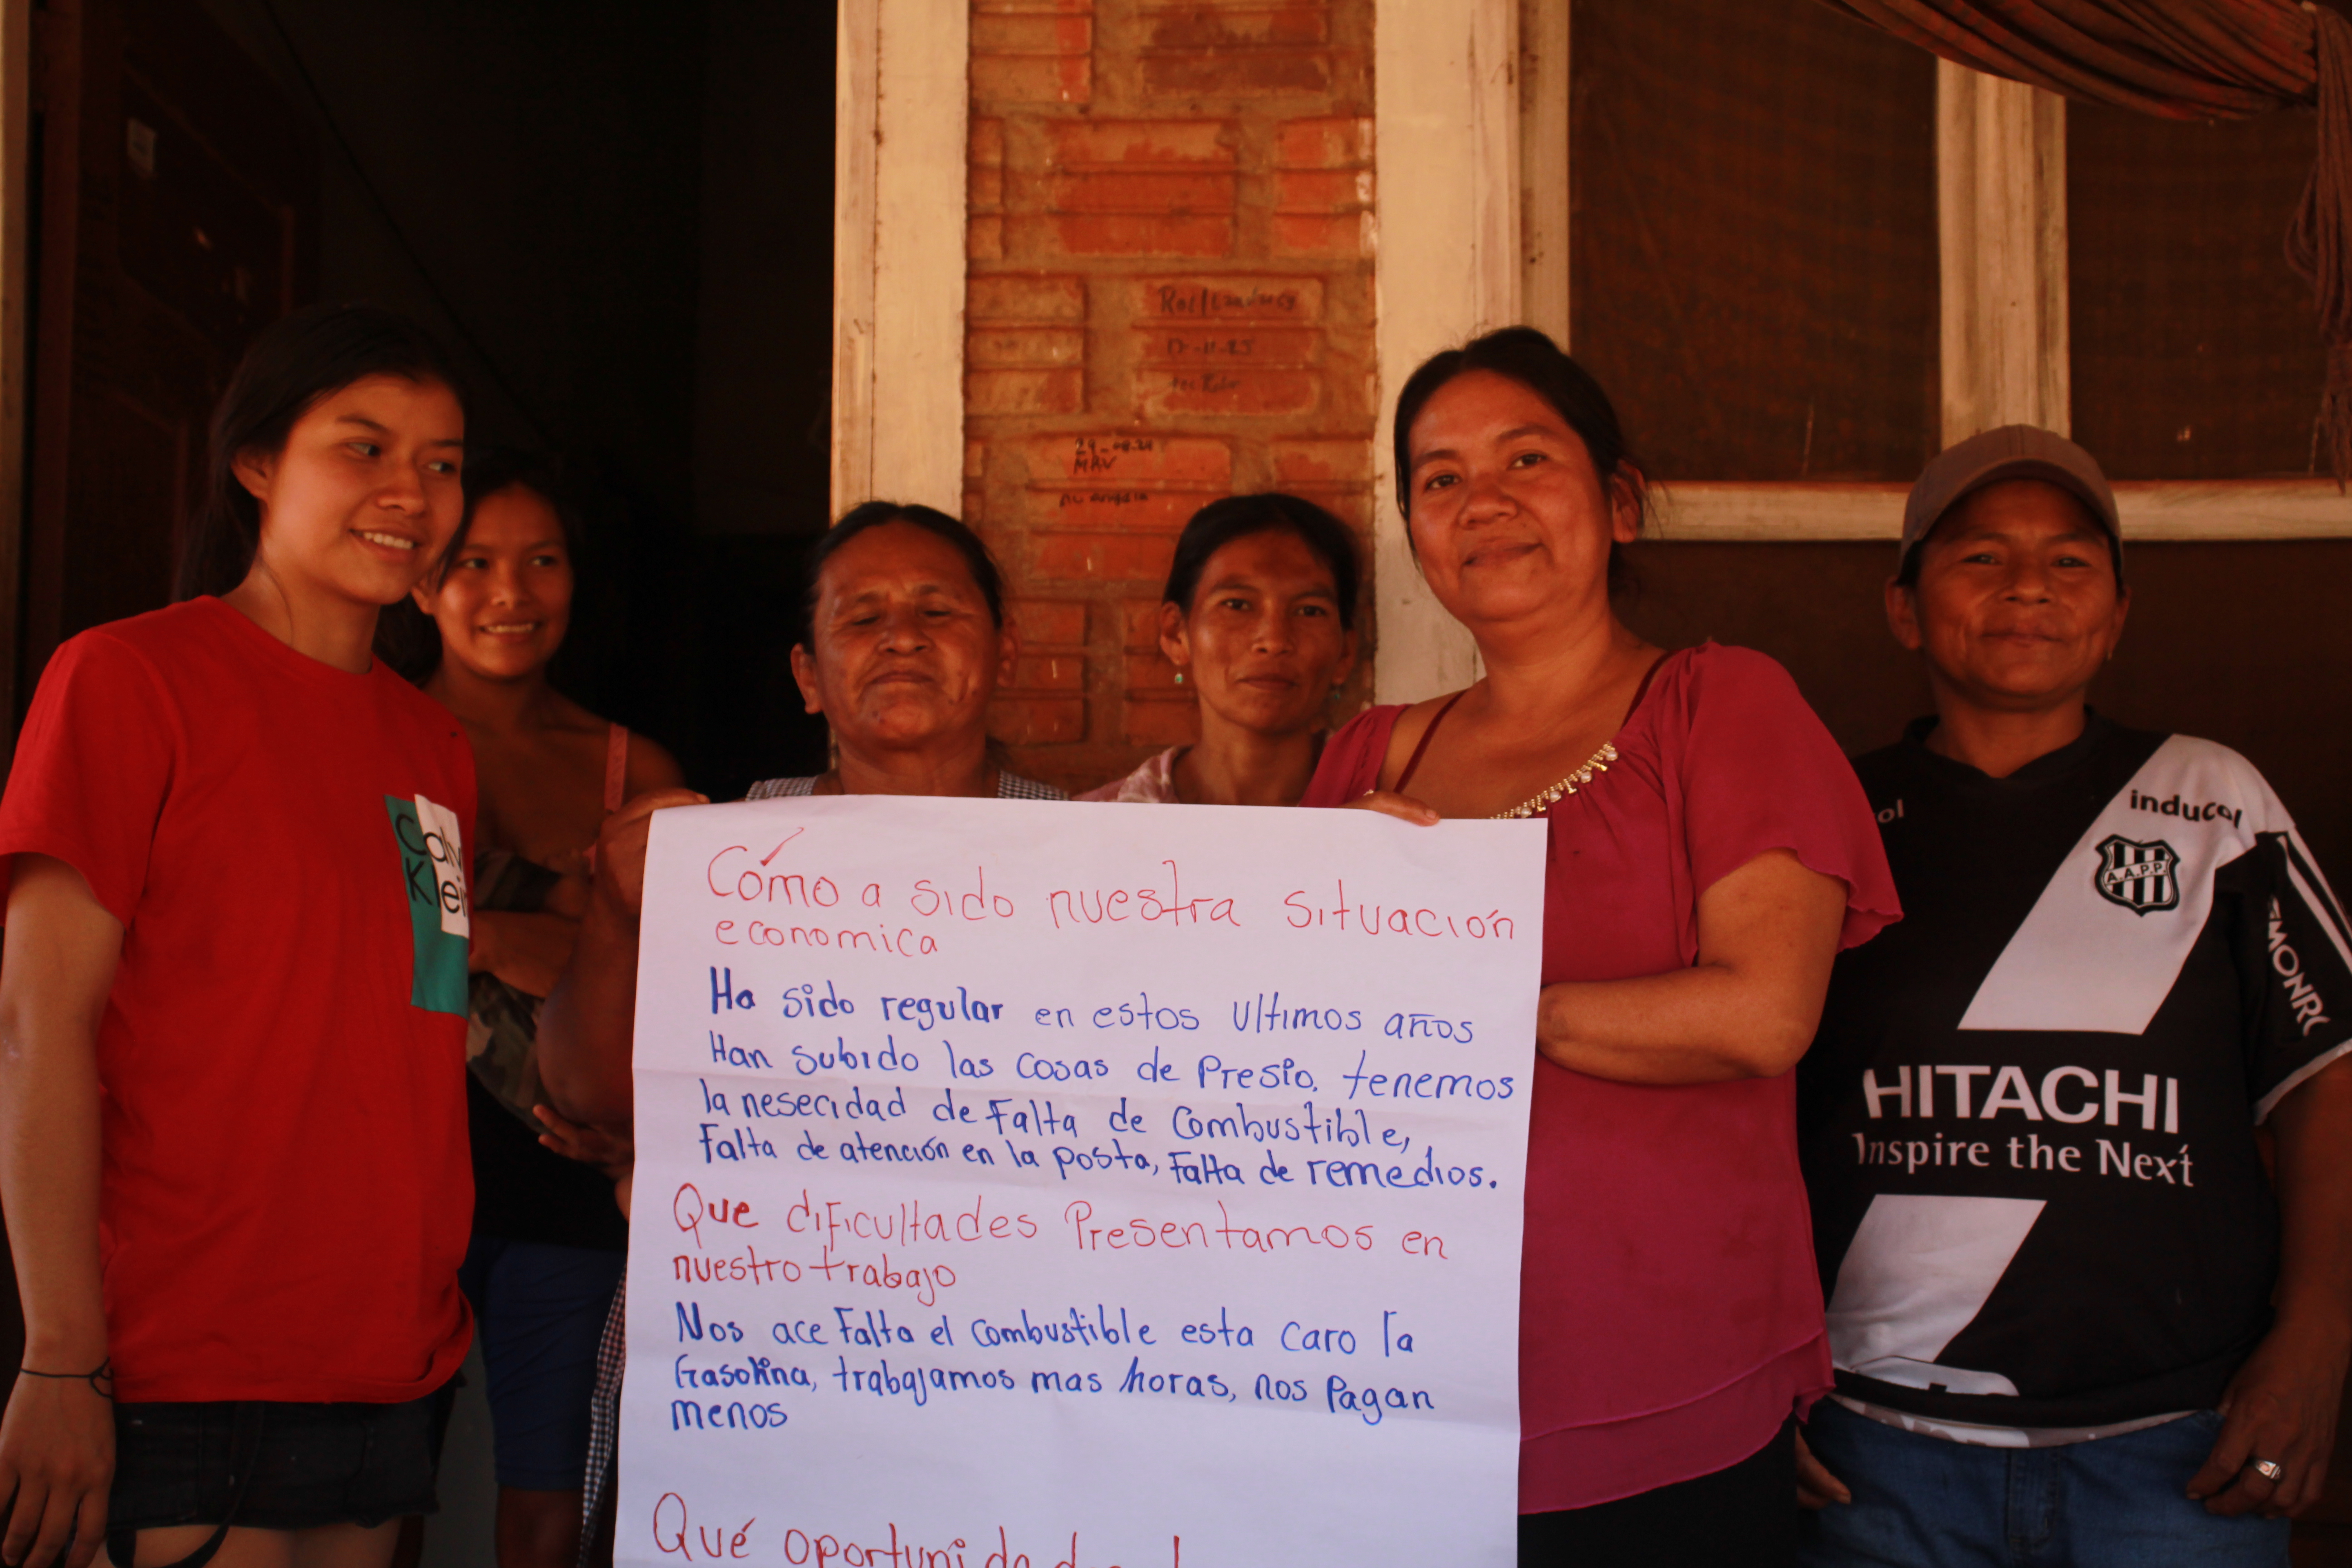 Cómo a sido nuestra situación
economica
Ha sido regular en estos ultimos años
Han subido las cosas de Presio. tenemos
la nesecidad de Falta de Combustible,
Falta de atención en la posta, Falta de remedios.
Que dificultades Presentamos en
nuestro trabajo
Nos ace Falta el Combustible esta caro la
Gasolina, trabajamos mas horas, nos Pagan
menos
Qué
29-08-21
MAV
Calv
Klein
inducol
A.A.P.P.
HITACHI
Inspire the Next